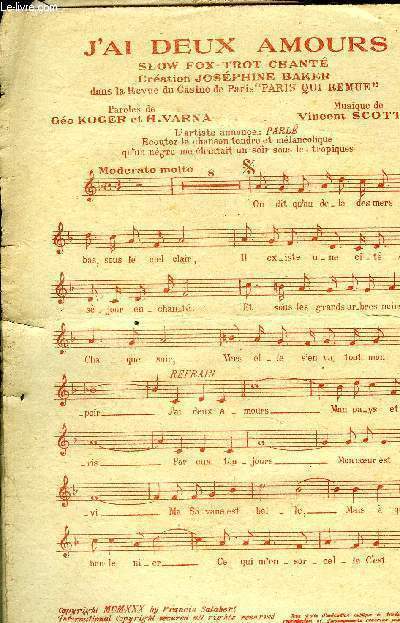 J'AI DEUX AMOURS
SLOW FOX-TROT CHANTÉ
Création JOSÉPHINE BAKER
dans la Revue du Casino de Paris "PARIS QUI REMUE"
Paroles de
Géo KOGER et H. VARNA
Musique de
Vincent SCOTT
L'artiste annonce: PARLÉ
Ecoutez la chanson tendre et mélancolique
qu'un nègre me chantait un soir sous les tropiques
Moderato molto
8
On dit qu'au de-la des mers
bas, sous le ciel clair, Il ex-iste u-ne ci-té
sé-jour en-chan-té. Et sous les grands ar-bres noirs
Cha-que soir, Vers el-le s'en va tout mon
REFRAIN
poir J'ai deux a-mours Mon pa-ys et
ris Par eux tou-jours Mon cœur est
vi Ma Sa-vane est bel-le, Mais à
bon le ni-er Ce qui m'en-sor-cel-le C'est
Copyright MCMXXX by Francis Salabert
International Copyright secured all rights reserved